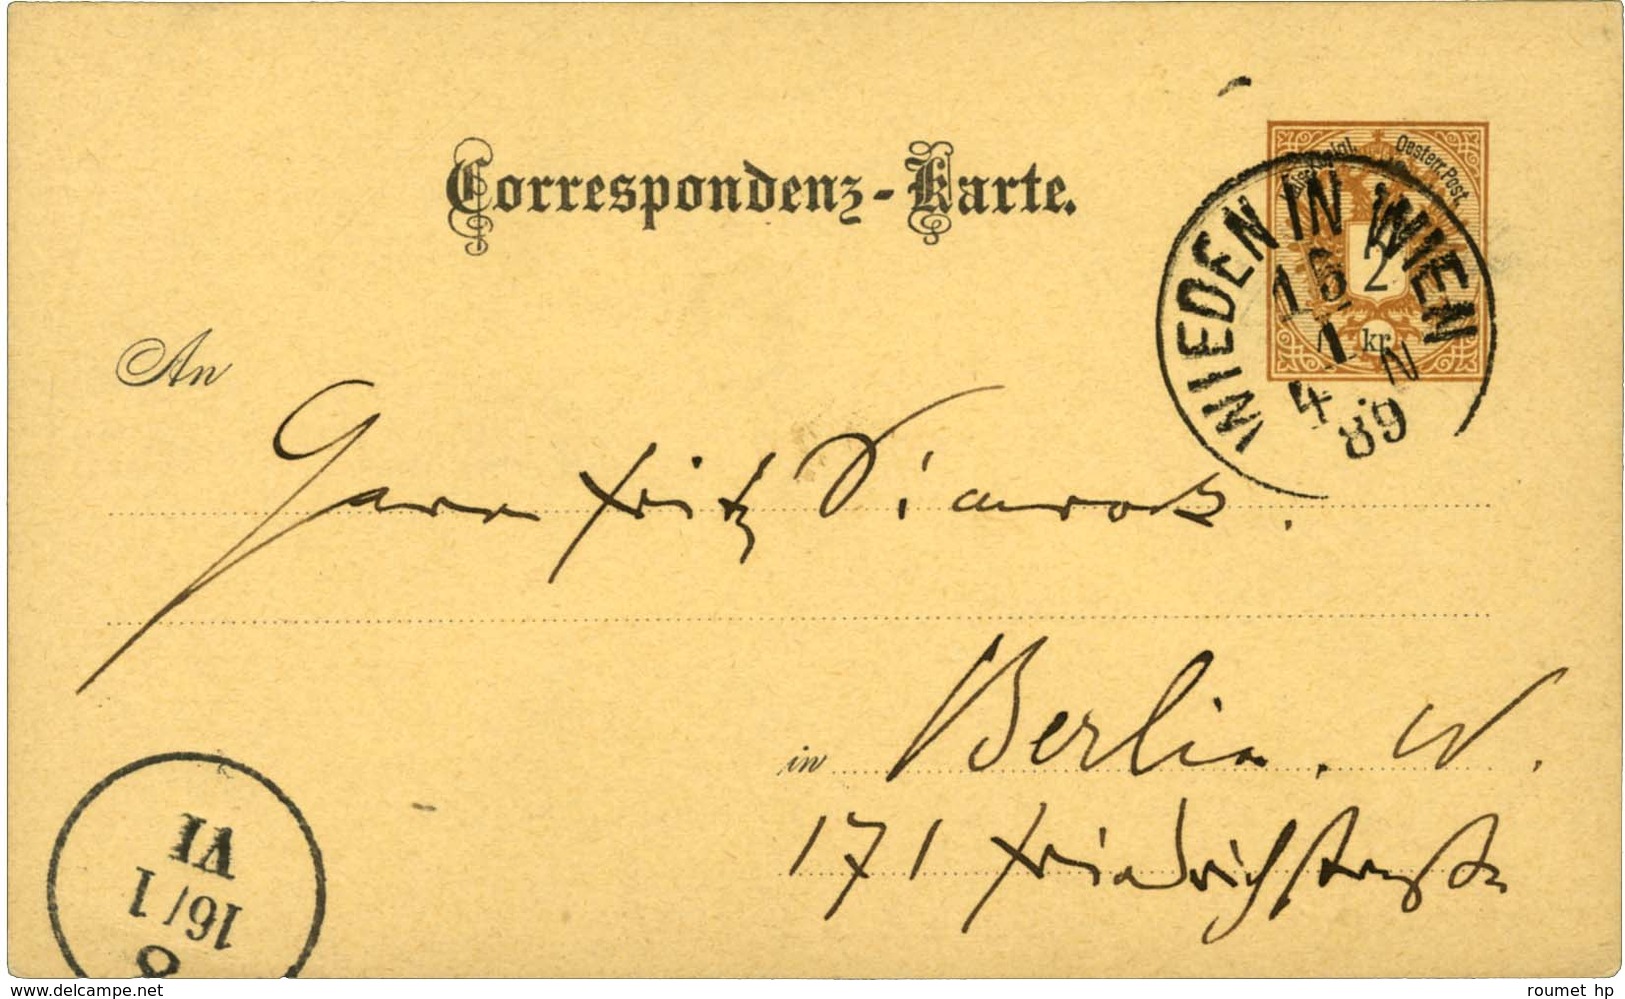 Correspondenz-Karte.
Oesterr. Post.
2
kr.
WIEDEN IN WIEN
1
4 N
89
An
Herrn Fritz Simrock.
in Berlin. W.
171 Friedrichstrasse
VI
16/1
8
www.delcampe.net
roumet hp